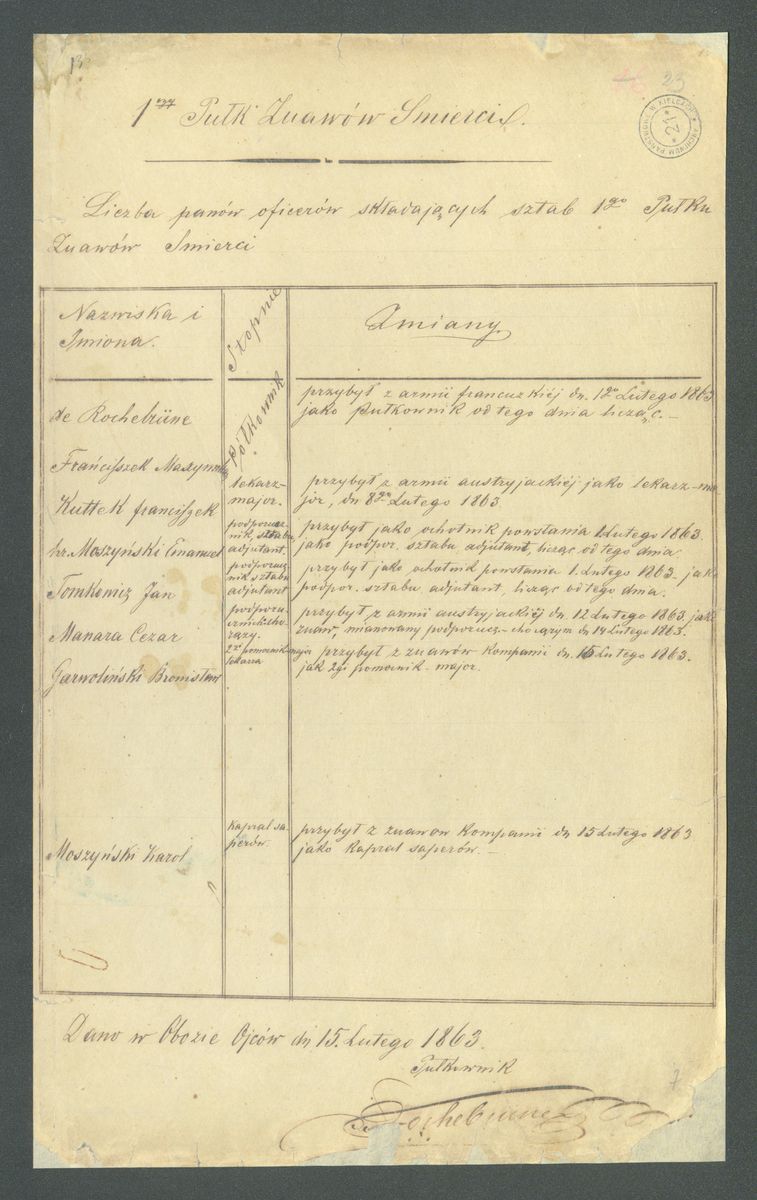 13
46 23
ARCHIWUM PAŃSTWOWE W KIELCACH
*21*
1szy Pułk Zuawów Smierci.
Liczba panów oficerów składających sztab 1go Pułku
Zuawów Smierci
Nazwiska i
Imiona.
Stopnie
Zmiany
de Rochebrüne
półkownik
przybył z armii francuzkiéj dn. 1go Lutego 1863
jako Pułkownik od tego dnia licząc. —
Kuttek franciszek
lekarz-
major.
przybył z armii austryjackiéj jako lekarz-ma
jor, dn 8go Lutego 1863
hr. Moszyński Emanuel
podporucz-
nik sztabu
adjutant.
przybył jako ochotnik powstania 1 Lutego 1863.
jako podpor. sztabu adjutant, licząc od tego dnia.
Tomkowicz Jan
podporucz-
nik sztabu
adjutant
przybył jako ochotnik powstania 1. Lutego 1863. jako
podpor. sztabu adjutant, licząc od tego dnia.
Manara Cezar
podporu-
cznik cho-
rąży.
przybył z armii austryjackiéj dn. 12 Lutego 1863 jako
zuaw, mianowany podporucz.-chorążym dn 14 Lutego 1863.
Garwoliński Bronisław
2gi pomocnik major
lekarza
przybył z zuawów Kompanii dn. 15 Lutego 1863.
jak 2gi pomocnik-major.
Moszyński Karol
Kapral sa-
perów.
przybył z zuawow Kompanii dn 15 Lutego 1863
jako Kapral saperów. —
Dano w Obozie Ojców dn. 15. Lutego 1863.
Pułkownik
Rochebrune